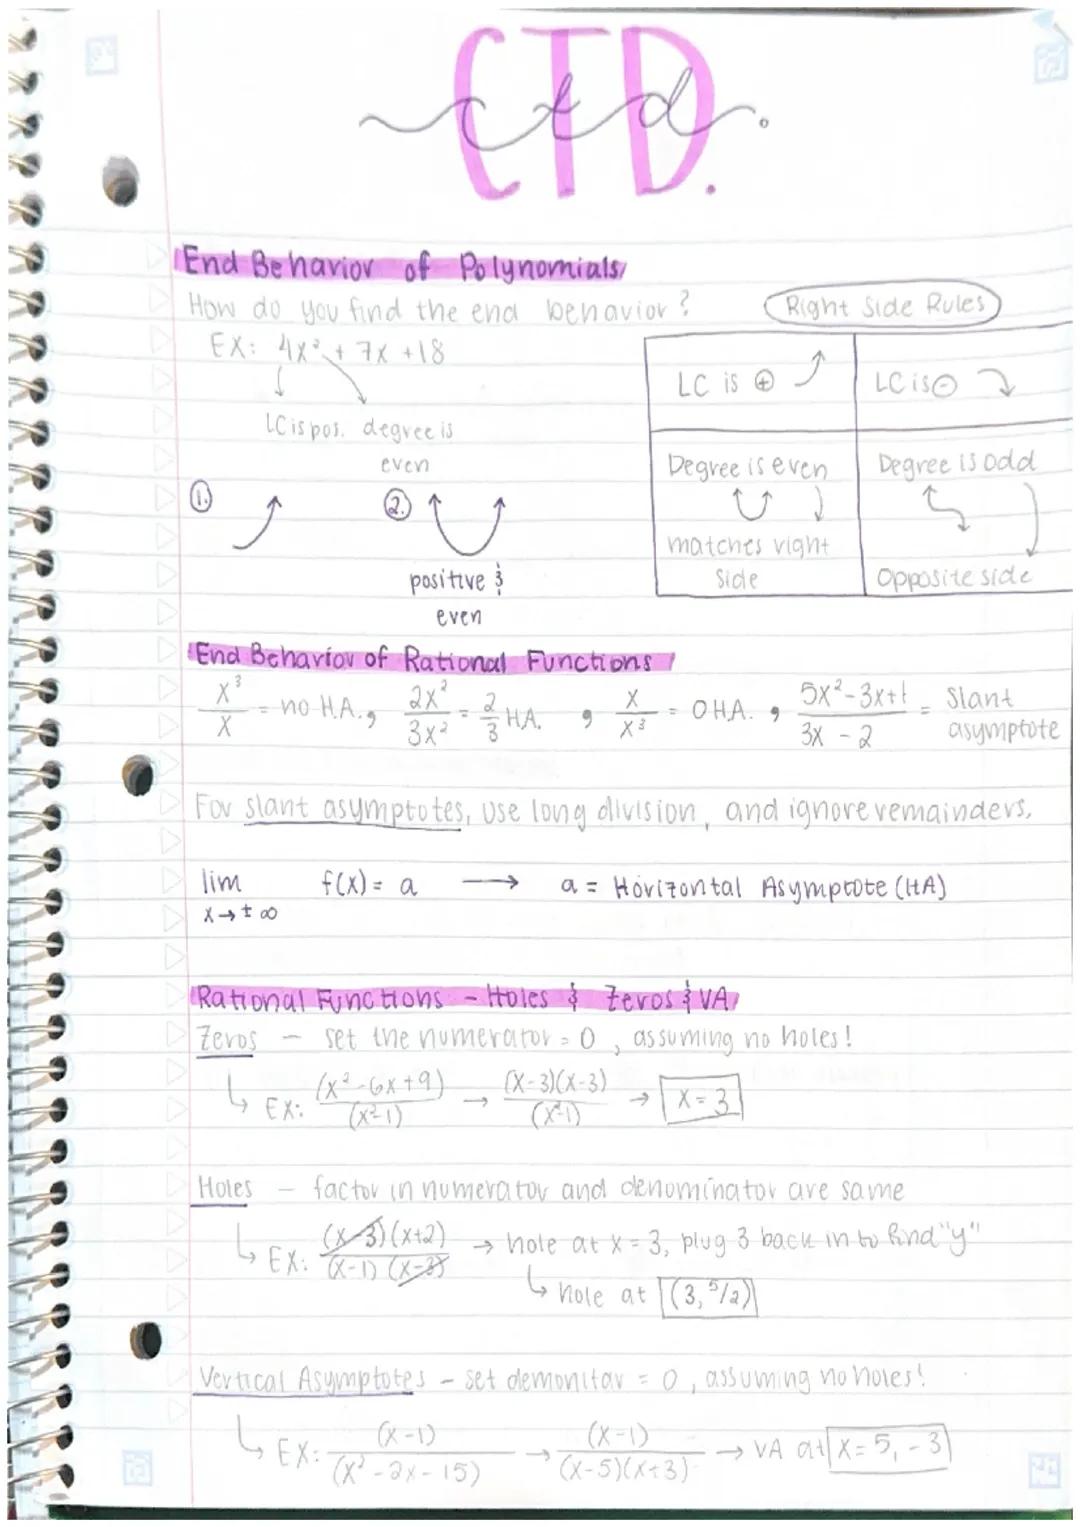 CTD.
ctd.
End Behavior of Polynomials
How do you find the end behavior?
EX: 4x² + 7x + 18
LC is pos. degree is
even
1.
2.
positive &
even
Right Side Rules
LC is ⊕
LC is ⊖
Degree is even
Degree is odd
matches right
side
Opposite side
End Behavior of Rational Functions
x³/x = no H.A., 2x²/3x² = 2/3 HA. , x/x³ = 0 HA. , (5x²-3x+1)/(3x-2) = Slant asymptote
For slant asymptotes, use long division, and ignore remainders.
lim f(x) = a → a = Horizontal Asymptote (HA)
x→±∞
Rational Functions - Holes & Zeros & VA
Zeros - set the numerator = 0, assuming no holes!
↳ EX: (x²-6x+9)/(x²-1) → (x-3)(x-3)/(x²-1) → x=3
Holes - factor in numerator and denominator are same
↳ EX: (x-3)(x+2)/(x-1)(x-3) → hole at x=3, plug 3 back in to find "y"
↳ hole at (3, 5/2)
Vertical Asymptotes - set demonitar = 0, assuming no holes!
↳ EX: (x-1)/(x²-2x-15) → (x-1)/(x-5)(x+3) → VA at x=5, -3